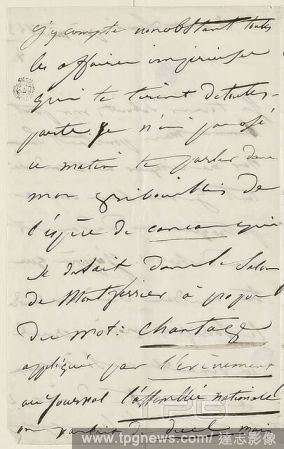 j'y compte nonobstant toutes
les affaires impérieuses
qui te tirent de toutes
parts. Je n'ai pas osé
ce matin te parler dans
mon gribouillis de
l'espèce de cancan qui
se disait dans le Salon
de Montferrier à propos
du mot: chantage
appliqué par l'évènement
au journal l'assemblée nationale
on parlait de
www.tpgnews.com/達志影像